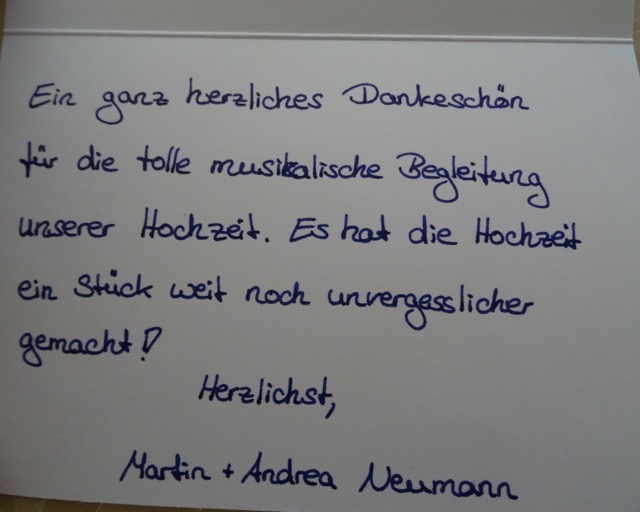 Ein ganz herzliches Dankeschön
für die tolle musikalische Begleitung
unserer Hochzeit. Es hat die Hochzeit
ein Stück weit noch unvergesslicher
gemacht!
Herzlichst,
Martin + Andrea Neumann